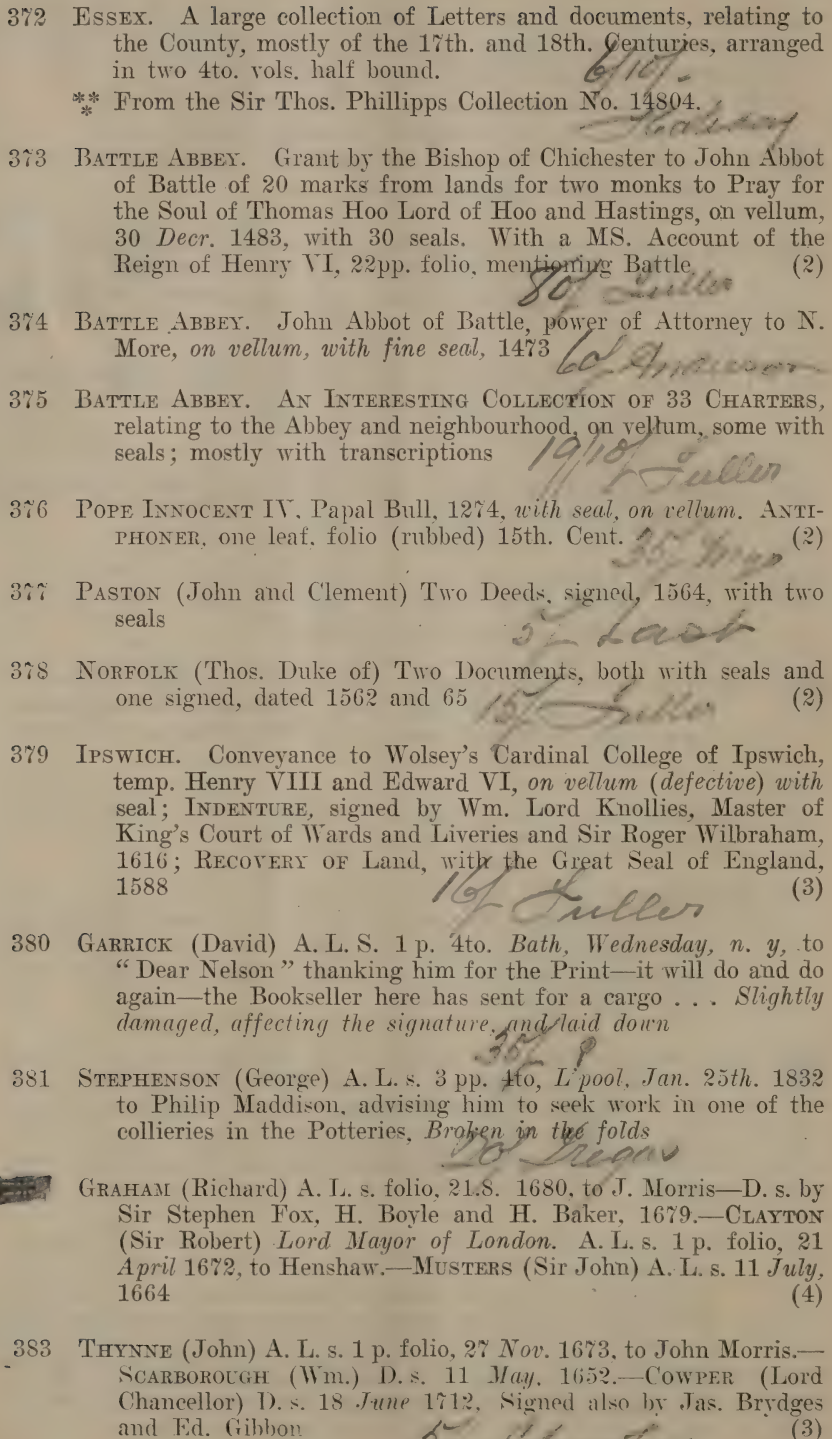 372 ESSEX. A large collection of Letters and documents, relating to
the County, mostly of the 17th. and 18th. Centuries, arranged
in two 4to. vols. half bound.
*** From the Sir Thos. Phillipps Collection No. 14804.
373 BATTLE ABBEY. Grant by the Bishop of Chichester to John Abbot
of Battle of 20 marks from lands for two monks to Pray for
the Soul of Thomas Hoo Lord of Hoo and Hastings, on vellum,
30 Decr. 1483, with 30 seals. With a MS. Account of the
Reign of Henry VI, 22pp. folio, mentioning Battle. (2)
80/ Fuller
374 BATTLE ABBEY. John Abbot of Battle, power of Attorney to N.
More, on vellum, with fine seal, 1473
375 BATTLE ABBEY. AN INTERESTING COLLECTION OF 33 CHARTERS,
relating to the Abbey and neighbourhood, on vellum, some with
seals; mostly with transcriptions
Fuller
376 POPE INNOCENT IV. Papal Bull, 1274, with seal, on vellum. ANTI-
PHONER, one leaf. folio (rubbed) 15th. Cent. (2)
377 PASTON (John and Clement) Two Deeds, signed, 1564, with two
seals
Last
378 NORFOLK (Thos. Duke of) Two Documents, both with seals and
one signed, dated 1562 and 65 Fuller (2)
379 IPSWICH. Conveyance to Wolsey's Cardinal College of Ipswich,
temp. Henry VIII and Edward VI, on vellum (defective) with
seal; INDENTURE, signed by Wm. Lord Knollies, Master of
King's Court of Wards and Liveries and Sir Roger Wilbraham,
1616; RECOVERY OF Land, with the Great Seal of England,
1588 16/ Fuller (3)
380 GARRICK (David) A. L. S. 1 p. 4to. Bath, Wednesday, n. y, to
“ Dear Nelson ” thanking him for the Print—it will do and do
again—the Bookseller here has sent for a cargo . . . Slightly
damaged, affecting the signature, and laid down
381 STEPHENSON (George) A. L. s. 3 pp. 4to, L'pool, Jan. 25th. 1832
to Philip Maddison, advising him to seek work in one of the
collieries in the Potteries, Broken in the folds
GRAHAM (Richard) A. L. s. folio, 21.8. 1680, to J. Morris—D. s. by
Sir Stephen Fox, H. Boyle and H. Baker, 1679.—CLAYTON
(Sir Robert) Lord Mayor of London. A. L. s. 1 p. folio, 21
April 1672, to Henshaw.—MUSTERS (Sir John) A. L. s. 11 July,
1664 (4)
383 THYNNE (John) A. L. s. 1 p. folio, 27 Nov. 1673, to John Morris.—
SCARBOROUGH (Wm.) D. s. 11 May, 1652.—COWPER (Lord
Chancellor) D. s. 18 June 1712, Signed also by Jas. Brydges
and Ed. Gibbon (3)